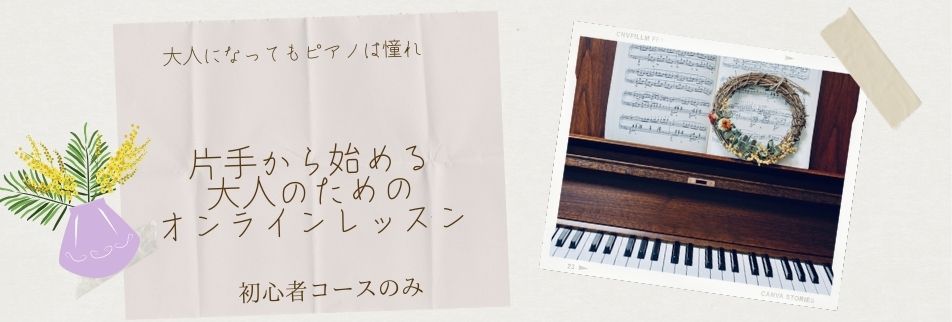 大人になってもピアノは憧れ
片手から始める
大人のための
オンラインレッスン
初心者コースのみ
23
CANVA STORIES